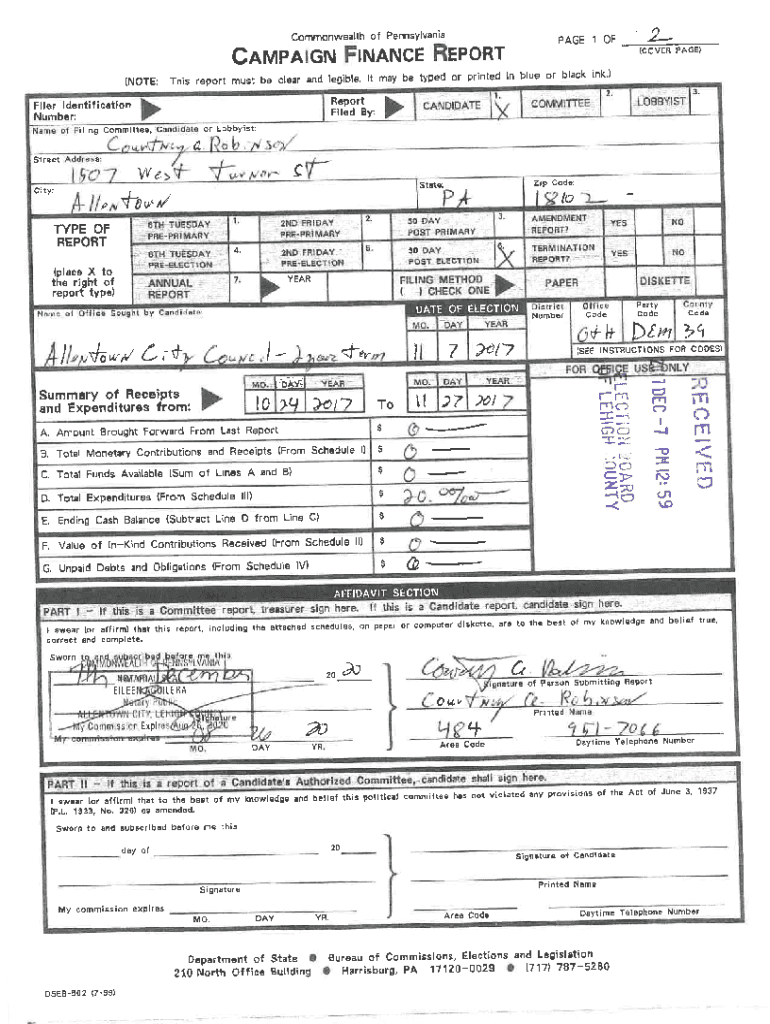 Commonwealth of Pennsylvania
PAGE 1 OF 2
(COVER PAGE)
CAMPAIGN FINANCE REPORT
(NOTE: This report must be clear and legible. It may be typed or printed in blue or black ink.)
Filer Identification Number:
Report Filed By:
CANDIDATE 1. X
COMMITTEE 2.
LOBBYIST 3.
Name of Filing Committee, Candidate or Lobbyist:
Courtney A Robinson
Street Address:
1507 West Turner ST
City: Allentown
State: PA
Zip Code: 18102 -
TYPE OF REPORT
(place X to the right of report type)
6TH TUESDAY PRE-PRIMARY 1.
2ND FRIDAY PRE-PRIMARY 2.
30 DAY POST PRIMARY 3.
AMENDMENT REPORT? YES NO
6TH TUESDAY PRE-ELECTION 4.
2ND FRIDAY PRE-ELECTION 5.
30 DAY POST ELECTION 6. X
TERMINATION REPORT? YES NO
ANNUAL REPORT 7.
YEAR
FILING METHOD ( ) CHECK ONE
PAPER
DISKETTE
Name of Office Sought by Candidate:
Allentown City Council - 2 year term
DATE OF ELECTION
MO. DAY YEAR
11 7 2017
District Number
Office Code OTH
Party Code DEM
County Code 39
(SEE INSTRUCTIONS FOR CODES)
Summary of Receipts and Expenditures from:
MO. DAY YEAR
10 24 2017
To
MO. DAY YEAR
11 27 2017
FOR OFFICE USE ONLY
RECEIVED
DEC -7 PM 12: 59
ELECTION BOARD
OF LEHIGH COUNTY
A. Amount Brought Forward From Last Report $ 0
B. Total Monetary Contributions and Receipts (From Schedule I) $ 0
C. Total Funds Available (Sum of Lines A and B) $ 0
D. Total Expenditures (From Schedule III) $ 20.00/100
E. Ending Cash Balance (Subtract Line D from Line C) $ 0
F. Value of In-Kind Contributions Received (From Schedule II) $ 0
G. Unpaid Debts and Obligations (From Schedule IV) $ 0
AFFIDAVIT SECTION
PART I - If this is a Committee report, treasurer sign here. If this is a Candidate report, candidate sign here.
I swear (or affirm) that this report, including the attached schedules, on paper or computer diskette, are to the best of my knowledge and belief true, correct and complete.
Sworn to and subscribed before me this
COMMONWEALTH OF PENNSYLVANIA
7th December 20 20
NOTARIAL SEAL
EILEEN AGUILERA
Notary Public
ALLENTOWN CITY, LEHIGH COUNTY
Signature
My Commission Expires Aug 26, 2020
My commission expires 08 26 20
MO. DAY YR.
Signature of Person Submitting Report
Courtney A. Robinson
Printed Name
484 951-7066
Area Code
Daytime Telephone Number
PART II - If this is a report of a Candidate's Authorized Committee, candidate shall sign here.
I swear (or affirm) that to the best of my knowledge and belief this political committee has not violated any provisions of the Act of June 3, 1937
(P.L. 1333, No. 320) as amended.
Sworn to and subscribed before me this
day of 20
Signature of Candidate
Signature
Printed Name
My commission expires
MO. DAY YR.
Area Code
Daytime Telephone Number
Department of State ● Bureau of Commissions, Elections and Legislation
210 North Office Building ● Harrisburg, PA 17120-0029 ● (717) 787-5280
DSEB-502 (7-99)